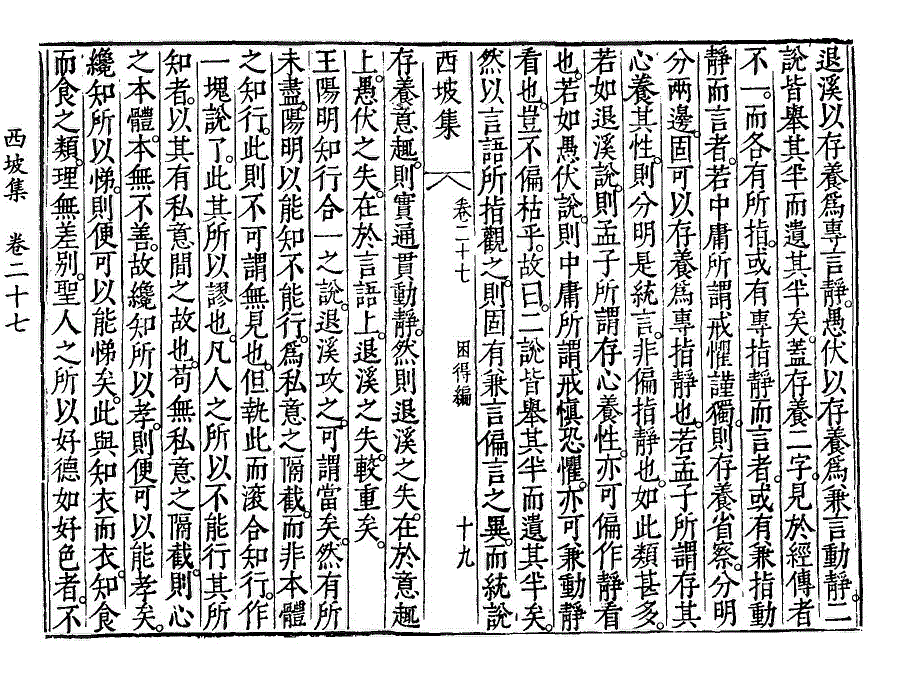 退溪以存養爲專言靜。愚伏以存養爲兼言動靜。二
說皆擧其半而遺其半矣。蓋存養二字。見於經傳者
不一。而各有所指。或有專指靜而言者。或有兼指動
靜而言者。若中庸所謂戒懼謹獨。則存養省察。分明
分兩邊。固可以存養爲專指靜也。若孟子所謂存其
心養其性。則分明是統言。非偏指靜也。如此類甚多。
若如退溪說。則孟子所謂存心養性。亦可偏作靜看
也。若如愚伏說。則中庸所謂戒愼恐懼。亦可兼動靜
看也。豈不偏枯乎。故曰。二說皆擧其半而遺其半矣。
然以言語所指觀之。則固有兼言偏言之異。而統說
西坡集
卷二十七
困得編
十九
存養意趣。則實通貫動靜。然則退溪之失。在於意趣
上。愚伏之失。在於言語上。退溪之失。較重矣。
王陽明知行合一之說。退溪攻之。可謂當矣。然有所
未盡。陽明以能知不能行。爲私意之隔截。而非本體
之知行。此則不可謂無見也。但執此而滚合知行。作
一塊說了。此其所以謬也。凡人之所以不能行其所
知者。以其有私意間之故也。苟無私意之隔截。則心
之本體。本無不善。故纔知所以孝。則便可以能孝矣。
纔知所以悌。則便可以能悌矣。此與知衣而衣。知食
而食之類。理無差別。聖人之所以好德如好色者。不
西坡集 卷二十七